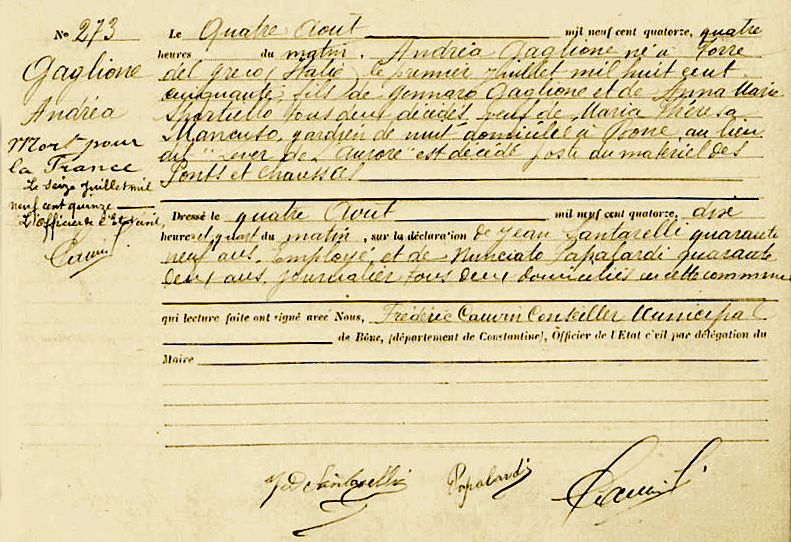 No 273
Gaglione
Andréa
Mort pour
la France
Le Seize Juillet mil
neuf cent quinze
L'officier de l'Etat civil,
Le Quatre Août mil neuf cent quatorze, quatre
heures du matin, Andréa Gaglione né à Torre
del greco, Italie, le premier Juillet mil huit cent
cinquante, fils de Gennaro Gaglione et de Anna Marie
tous deux décédés, époux de Maria Thérésa
Mancuso, gardien de nuit domicilié à Bône, au lieu
dit "Lever de l'Aurore" est décédé poste du matériel des
Ponts et Chaussées
Dressé le quatre Août mil neuf cent quatorze, dix
heures et quart du matin, sur la déclaration de Jean Santarelli quarante
neuf ans, Employé, et de Nunciato Papalardi quarante
deux ans, journalier tous deux domiciliés en cette commune
qui lecture faite ont signé avec Nous, Frédéric Cauvin Conseiller Municipal
de Bône, (département de Constantine), Officier de l'Etat c'vil par délégation du
Maire
Santarelli Papalardi Cauvin